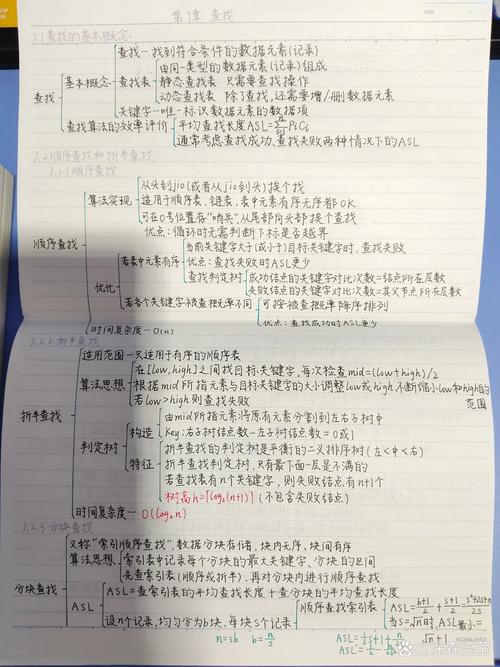 第7章 查找
7.1查找的基本概念
查找一找到符合条件的数据元素(记录)
由同一类型的数据元素(记录)组成
查找 基本概念 查找表 静态查找表 只需要查找操作
动态查找表 除了查找,还需要增/删数据元素
关键字一唯一标识数据元素的数据项
查找算法的效率评价 平均查找长度ASL=∑PiCi
通常考虑查找成功、查找失败两种情况下的ASL
7.2顺序查找和折半查找
7.2.1 顺序查找
从头到jio(或者从jio到头)挨个找
算法实现 适用于顺序表、链表,表中元素有序无序都OK
可在0号位置存“哨兵”,从尾部向头部挨个查找
优点:循环时无需判断下标是否越界
顺序查找
当前关键字大于(或小于)目标关键字时,查找失败
若表中元素有序 优点:查找失败时ASL更少
优化 查找判定树 成功结点的关键字对比次数=结点所在层数
失败结点的关键字对比次数=其父节点所在层数
若各个关键字被查概率不同 可按被查概率降序排列
优点:查找成功时ASL更少
时间复杂度—O(n)
7.2.2 折半查找
适用范围一只适用于有序的顺序表
在[low,high]之间找目标关键字,每次检查mid=(low+high)/2
算法思想 根据mid所指元素与目标关键字的大小调整low或high,不断缩小low和high的范围
若low>high则查找失败
折半查找
由mid所指元素将原有元素分割到左右子树中
构造 Key:右子树结点数一左子树结点数=0或1
判定树
折半查找的判定树是平衡的二叉排序树(左<中<右)
特征 折半查找判定树,只有最下面一层是不满的
若查找表有n个关键字,则失败结点有n+1个
树高h=⌈log₂(n+1)⌉(不包含失败结点)
时间复杂度—O(log₂n)
7.2.3 分块查找
又称“索引顺序查找”,数据分块存储,块内无序、块间有序
算法思想 索引表中记录每个分块的最大关键字、分块的区间
先查索引表(顺序或折半)、再对分块内进行顺序查找
分块查找
ASL=查索引表的平均查找长度+查分块的平均查找长度
ASL 设n个记录,均匀分为b块,每块s个记录 顺序查找索引表 ASL=b+1/2+s+1/2=s²+2s+n/2s
当s=√n时,ASL最小=√n+1
n=sb b=n/s